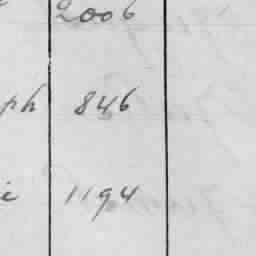 2006
ph 846
1194